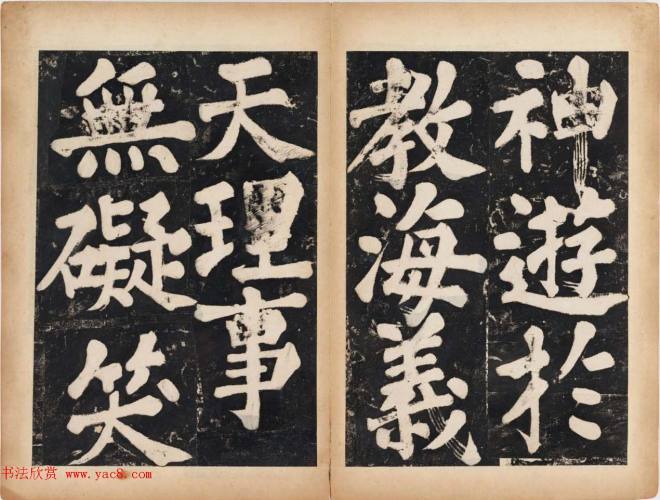 神遊於
教海義
天理事
無礙笑
书法欣赏
www.yac8.com